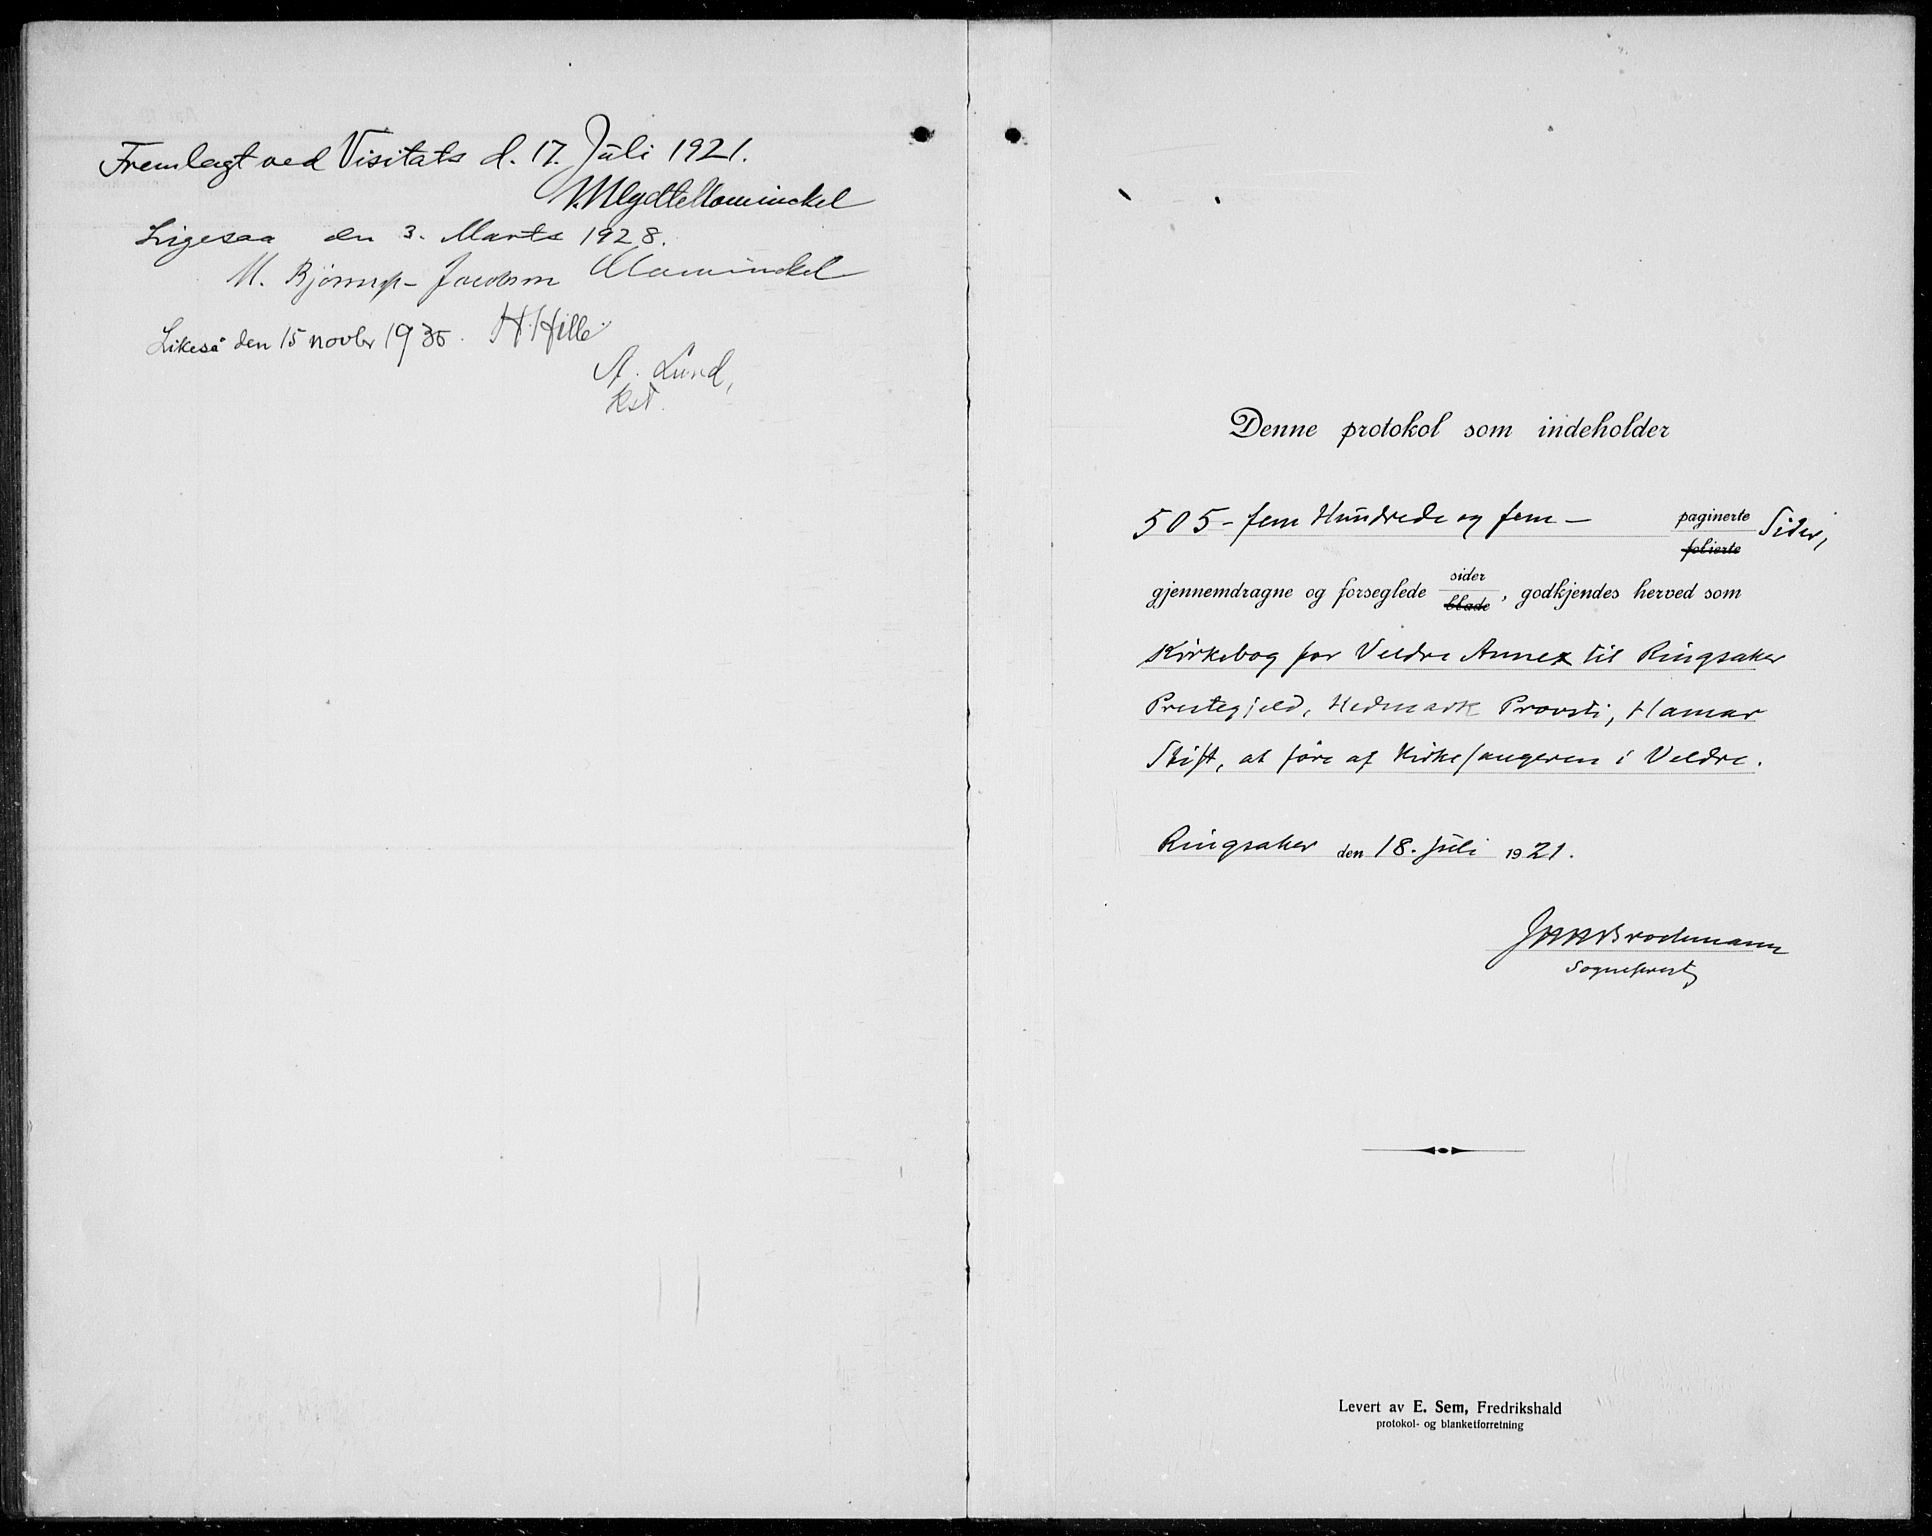 Fremlagt ved Visitats d. 17. Juli 1921.
Ligesaa den 3. Marts 1928.
M. Bjørnup-Jacobsen
Likeså den 15 novbr 1935. H. Hille
A. Lund,
kst.
Denne protokol som indeholder
505 - fem Hundrede og fem - paginerte Sider,
folierte
gjennemdragne og forseglede sider blade, godkjendes herved som
Kirkebog for Veldre Annex til Ringsaker
Prestegjeld, Hedmark Provsti, Hamar
Stift, at føre af Kirkesangeren i Veldre.
Ringsaker den 18. Juli 1921.
Brochmann
Sogneprest
Levert av E. Sem, Fredrikshald
protokol- og blanketforretning